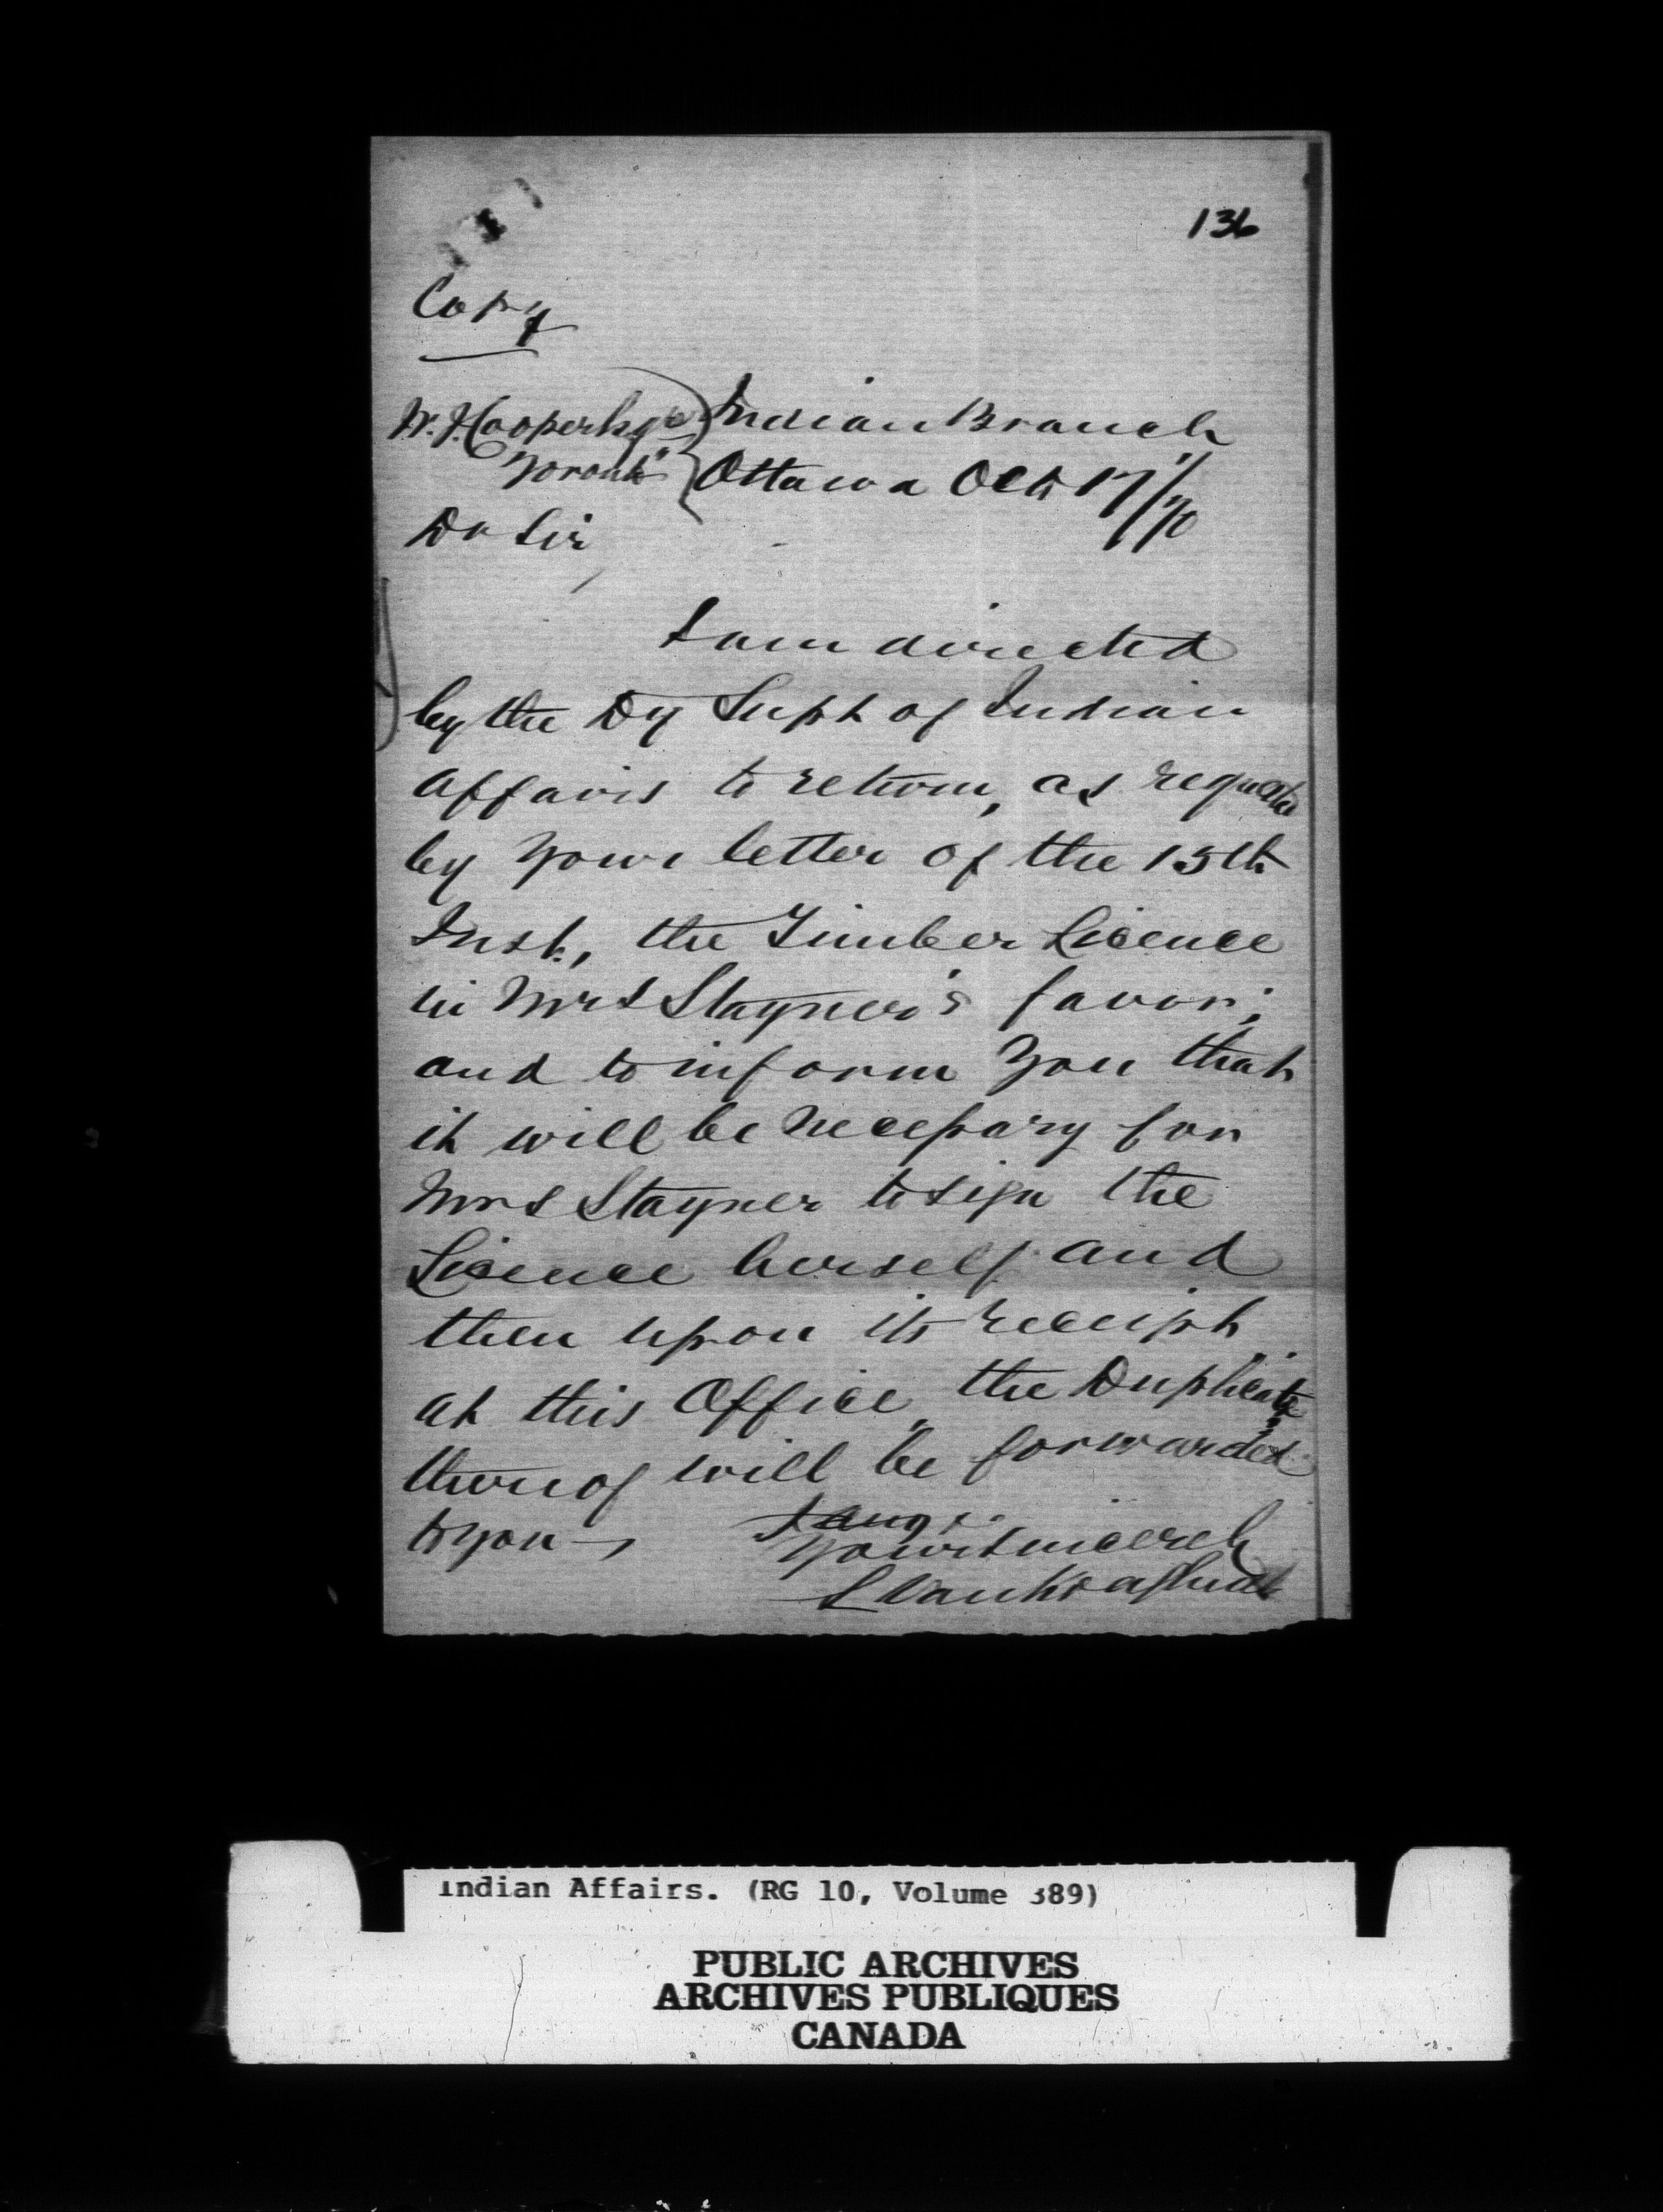 136
Copy
W. F. Cooper Esqre
Toronto
Indian Branch
Ottawa Oct 17/70
Dr Sir,
I am directed
by the Dy Supt of Indian
affairs to return, as requested
by your letter of the 15th
Inst., the Timber Licence
in Mrs Stayner's favor;
and to inform you that
it will be necessary for
Mrs Stayner to sign the
Licence herself and
then upon its receipt
at this Office, the Duplicate
thereof will be forwarded
to you—,
Yours sincerely
L Vankoughnet
Indian Affairs. (RG 10, Volume 389)
PUBLIC ARCHIVES
ARCHIVES PUBLIQUES
CANADA